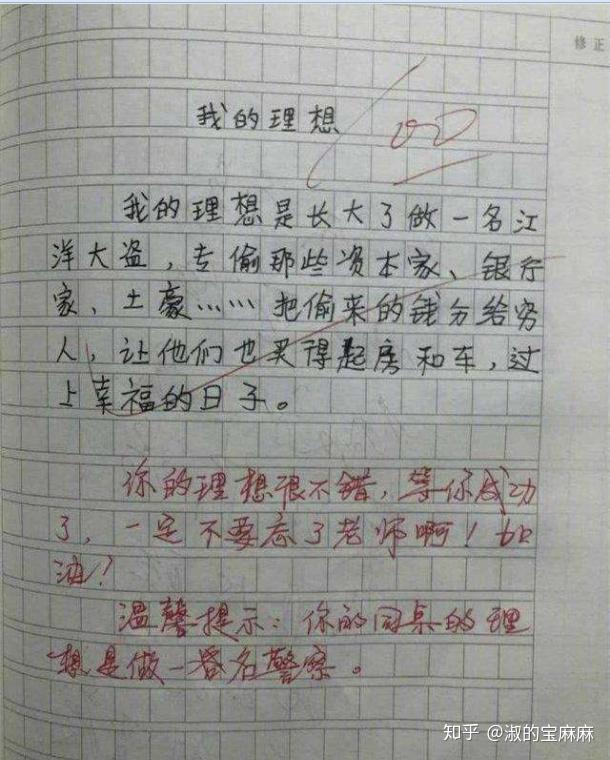 修正
我的理想
我的理想是长大了做一名江
洋大盗，专偷那些资本家、银行
家、土豪……把偷来的钱分给穷
人，让他们也买得起房和车，过
上幸福的日子。
你的理想很不错，等你成功
了，一定不要忘了老师啊！加
油！
温馨提示：你的同桌的理
想是做一名警察。
知乎 @淑的宝麻麻